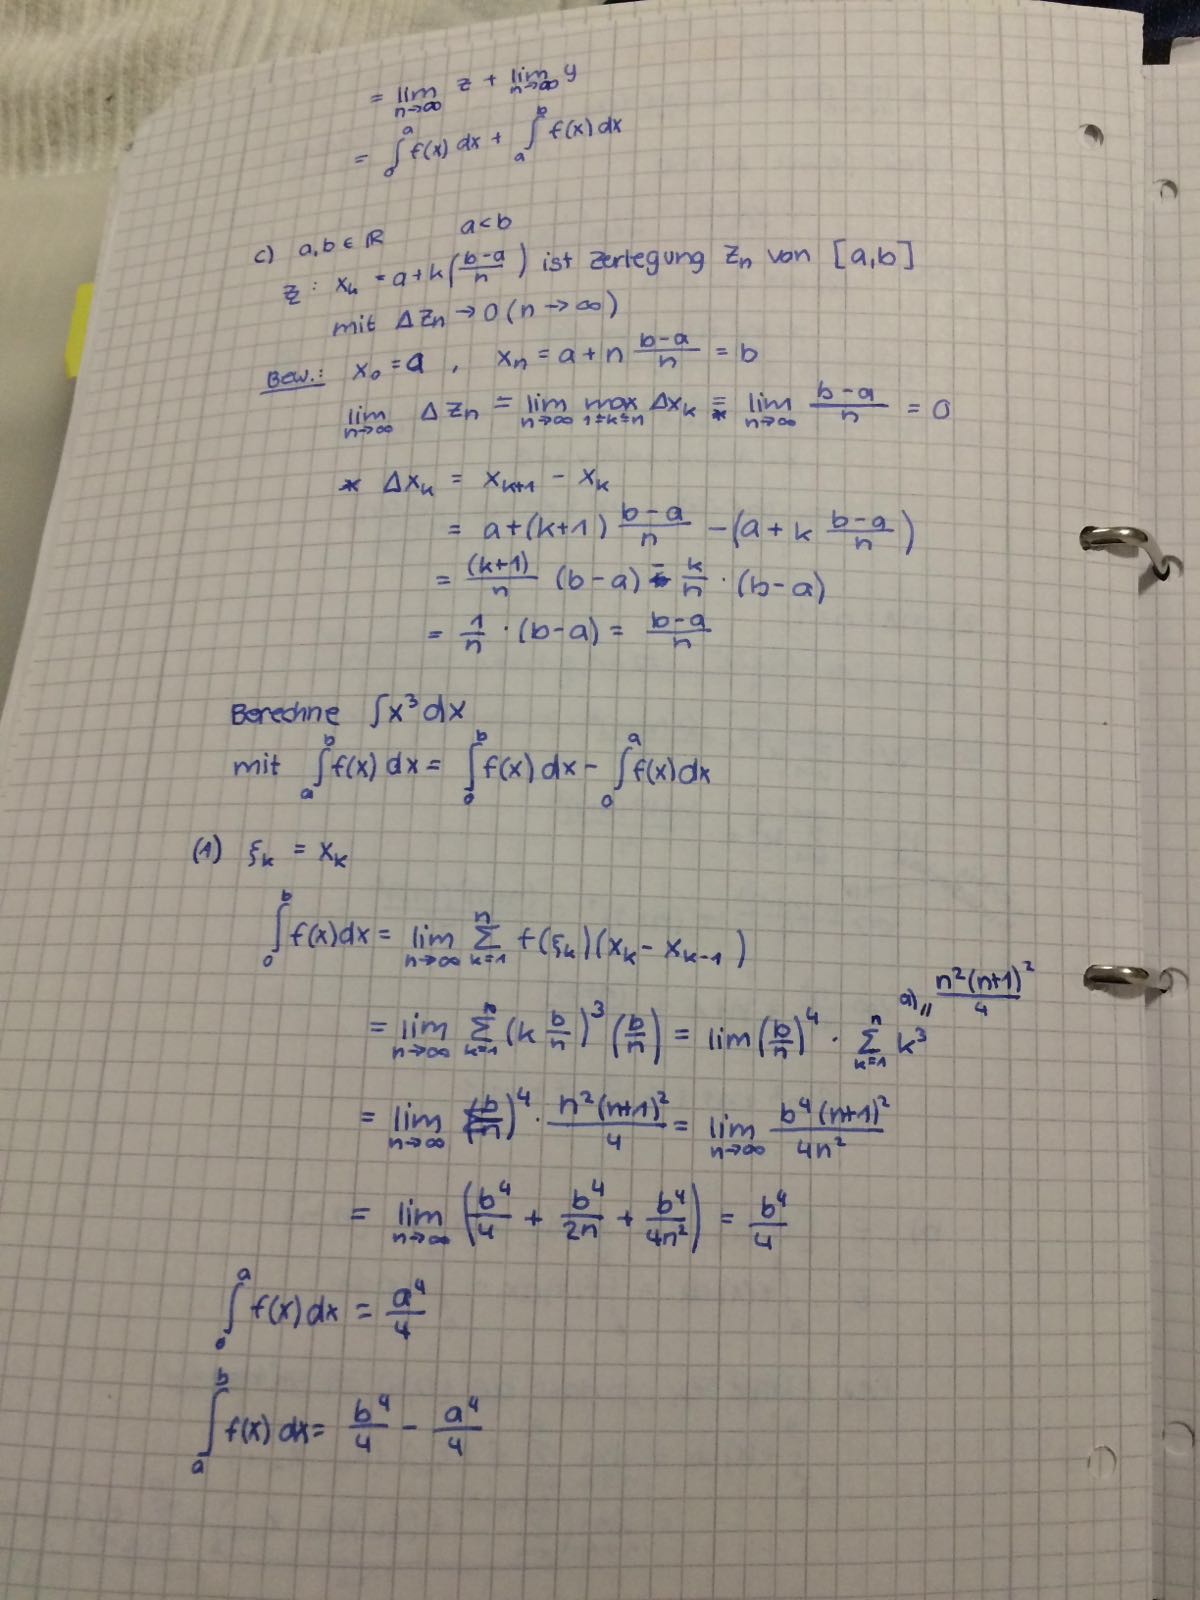 = lim n→∞ z + lim n→∞ y
= ∫₀ᵃ f(x) dx + ∫ₐᵇ f(x) dx
c) a,b ∈ ℝ a<b
Z: xₖ = a + k(b-a/n) ist Zerlegung Zₙ von [a,b]
mit ΔZₙ → 0 (n → ∞)
Bew.: x₀ = a, xₙ = a + n b-a/n = b
lim n→∞ ΔZₙ = lim n→∞ max 1≤k≤n Δxₖ =* lim n→∞ b-a/n = 0
* Δxₖ = xₖ₊₁ - xₖ
= a+(k+1) b-a/n - (a + k b-a/n)
= (k+1)/n (b-a) - k/n · (b-a)
= 1/n · (b-a) = b-a/n
Berechne ∫x³dx
mit ∫ₐᵇ f(x) dx = ∫₀ᵇ f(x) dx - ∫₀ᵃ f(x) dx
(1) ξₖ = xₖ
∫₀ᵇ f(x)dx = lim n→∞ Σ k=1 n f(ξₖ)(xₖ - xₖ₋₁)
a) || n²(n+1)²/4
= lim n→∞ Σ k=1 n (k b/n)³ (b/n) = lim (b/n)⁴ · Σ k=1 n k³
= lim n→∞ (b/n)⁴ · n²(n+1)²/4 = lim n→∞ b⁴(n+1)²/4n²
= lim n→∞ (b⁴/4 + b⁴/2n + b⁴/4n²) = b⁴/4
∫₀ᵃ f(x) dx = a⁴/4
∫ₐᵇ f(x) dx = b⁴/4 - a⁴/4